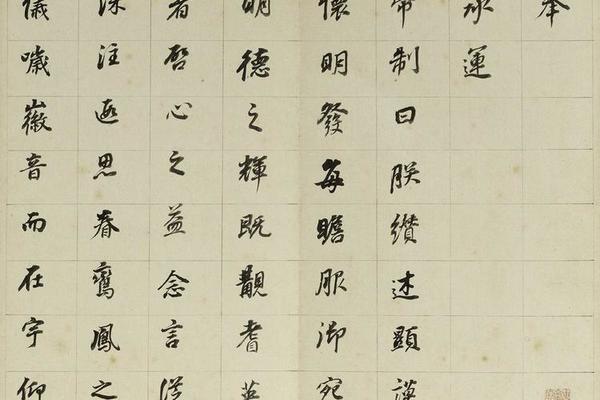 奉
承運
帝制曰朕纘述顯謨
懷明發每瞻服御宛
明德之輝既覯耆英
者啓心之益念言從
深注遐思眷鸞鳳之
儀噦徽音而在宇仰